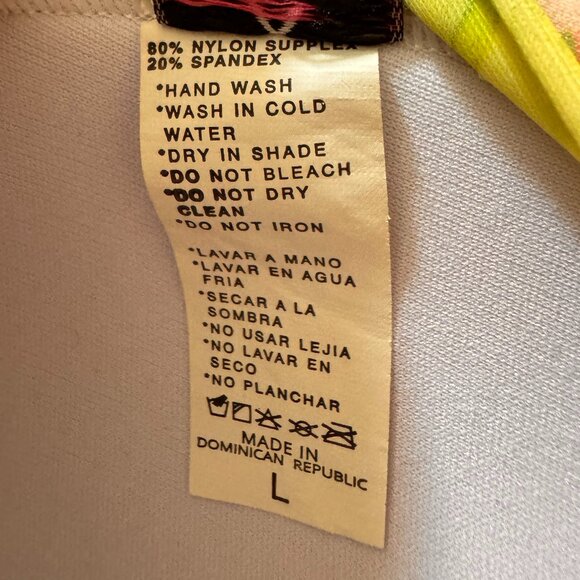 80% NYLON SUPPLEX
20% SPANDEX
*HAND WASH
*WASH IN COLD
WATER
*DRY IN SHADE
*DO NOT BLEACH
*DO NOT DRY
CLEAN
*DO NOT IRON
*LAVAR A MANO
*LAVAR EN AGUA
FRIA
*SECAR A LA
SOMBRA
*NO USAR LEJIA
*NO LAVAR EN
SECO
*NO PLANCHAR
MADE IN
DOMINICAN REPUBLIC
L